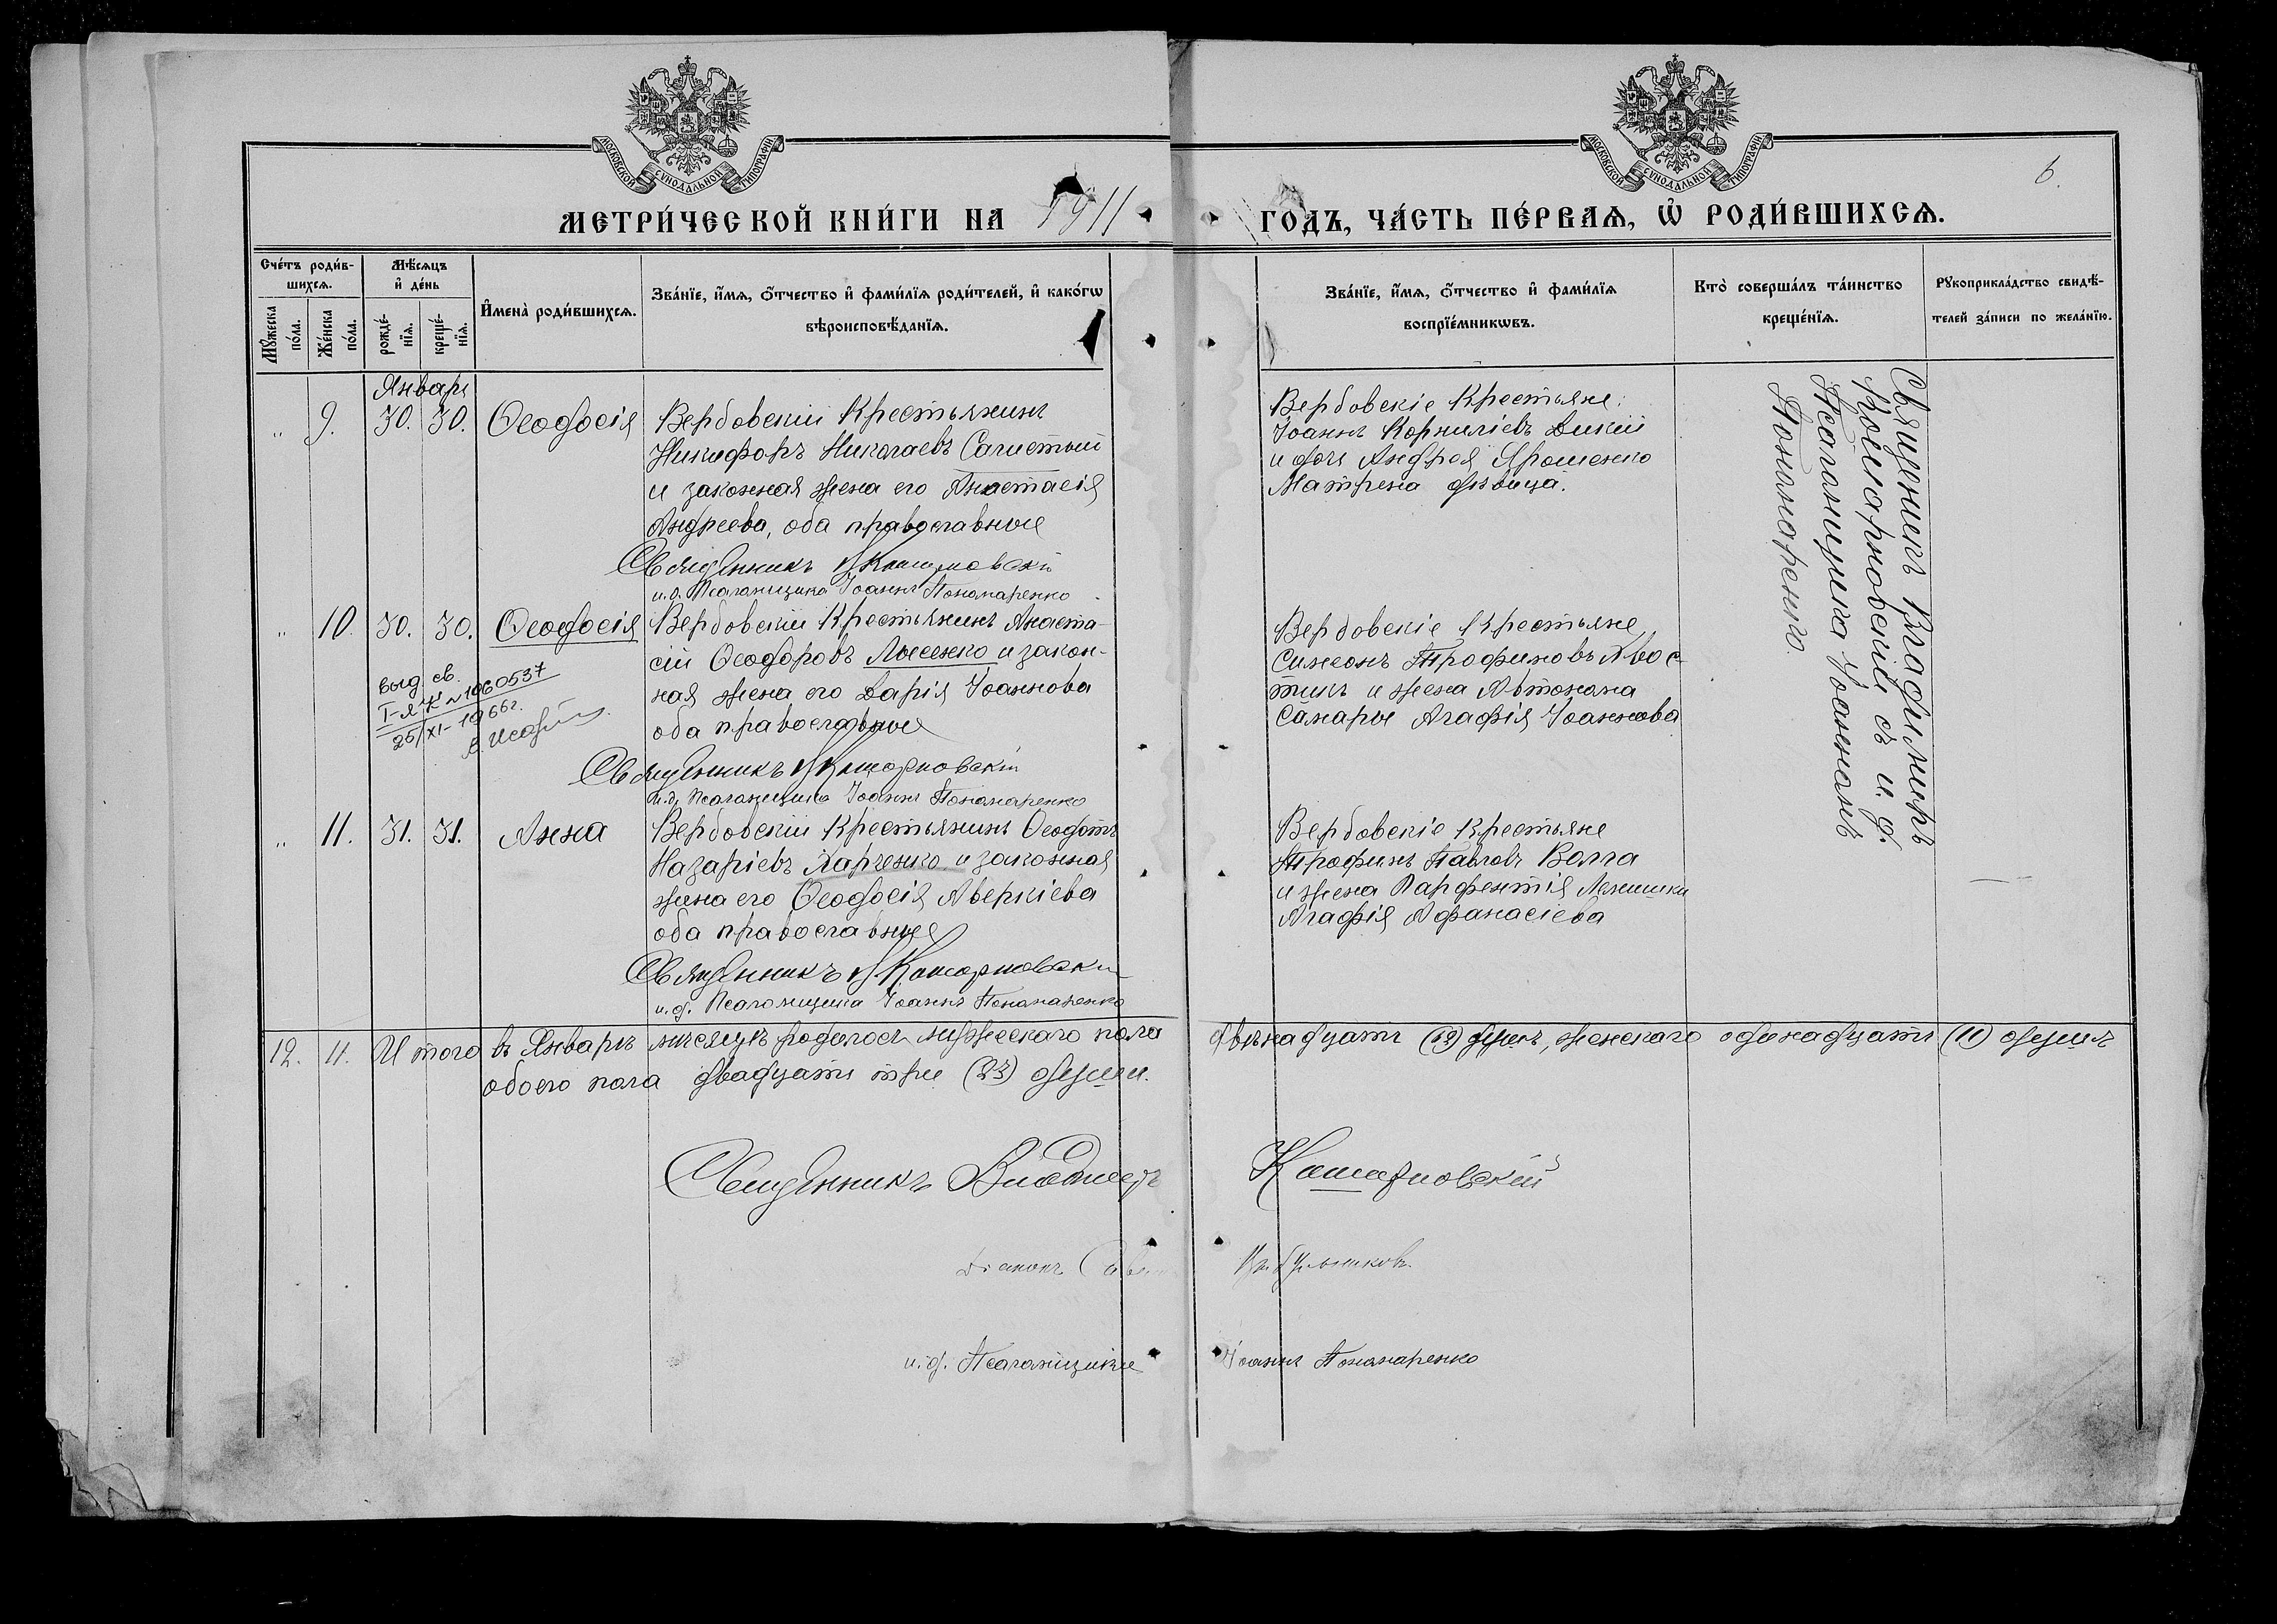 МОСКОВСКОЙ СУНОДАЛЬНОЙ ТИПОГРАФІИ
МОСКОВСКОЙ СУНОДАЛЬНОЙ ТИПОГРАФІИ
6.
МЕТРИ́ЧЕСКОЙ КНИ́ГИ НА 1911
ГОДЪ, ЧА́СТЬ ПЕ́РВАѦ, Ѡ҆ РОДИ́ВШИХСѦ.
Сче́тъ роди́в-
шихсѧ.
Мꙋ́жеска по́ла.
Же́нска по́ла.
Мѣ́сѧцъ
и҆ де́нь
рожде́-
нїѧ.
креще́-
нїѧ.
И҆мена̀ роди́вшихсѧ.
Зва́нїе, и҆́мѧ, ѻ҆́тчество и҆ фами́лїѧ роди́телей, и҆ како́гѡ
вѣроисповѣ́данїѧ.
Зва́нїе, и҆́мѧ, ѻ҆́тчество и҆ фами́лїѧ
воспрїе́мникѡвъ.
Кто̀ соверша́лъ та́инство
креще́нїѧ.
Рꙋкоприкла́дство свидѣ́-
телей за́писи по жела́нїю.
Январь
" 9. 30. 30. Ѳеодосія
Вербовскій Крестьянинъ
Никифоръ Николаевъ Салистый
и законная жена его Анастасія
Андреева, оба православные
Священникъ В Кошарновскій
и.д. Псаломщика Іоаннъ Пономаренко
Вербовскіе Крестьяне:
Іоаннъ Корниліевъ Дикій
и дочь Андрея Ярошенко
Матрена дѣвица.
Священникъ Владимиръ
Кошарновскій съ и. д.
Псаломщика Іоанномъ
Пономаренко.
" 10. 30. 30. Ѳеодосія
Вербовскій Крестьянинъ Анаста-
сій Ѳеодоровъ Лысенко и закон-
ная жена его Дарія Іоаннова
оба православные
Священникъ В Кошарновскій
и.д. Псаломщика Іоаннъ Пономаренко
выд. св.
I-ЯК №1060537
25/XI-1966г.
Вербовскіе Крестьяне
Симеонъ Трофимовъ Хвос-
тикъ и жена Автонома
Самары Агафія Іоаннова
" 11. 31. 31. Анна
Вербовскій Крестьянинъ Ѳеодотъ
Назаріевъ Харченко и законная
жена его Ѳеодосія Аверкіева
оба православные
Священникъ В Кошарновскій
и.д. Псаломщика Іоаннъ Пономаренко
Вербовскіе Крестьяне
Трофимъ Павловъ Волга
и жена Парфентія
Агафія Афанасіева
12. 11. Итого въ Январѣ мѣсяцѣ родилось мужескаго пола двѣнадцать (12) душъ, женскаго одинадцать (11) душъ
обоего пола двадцать три (23) души.
Священникъ Владимиръ Кошарновскій
Діаконъ
и.д. Псаломщика Іоаннъ Пономаренко